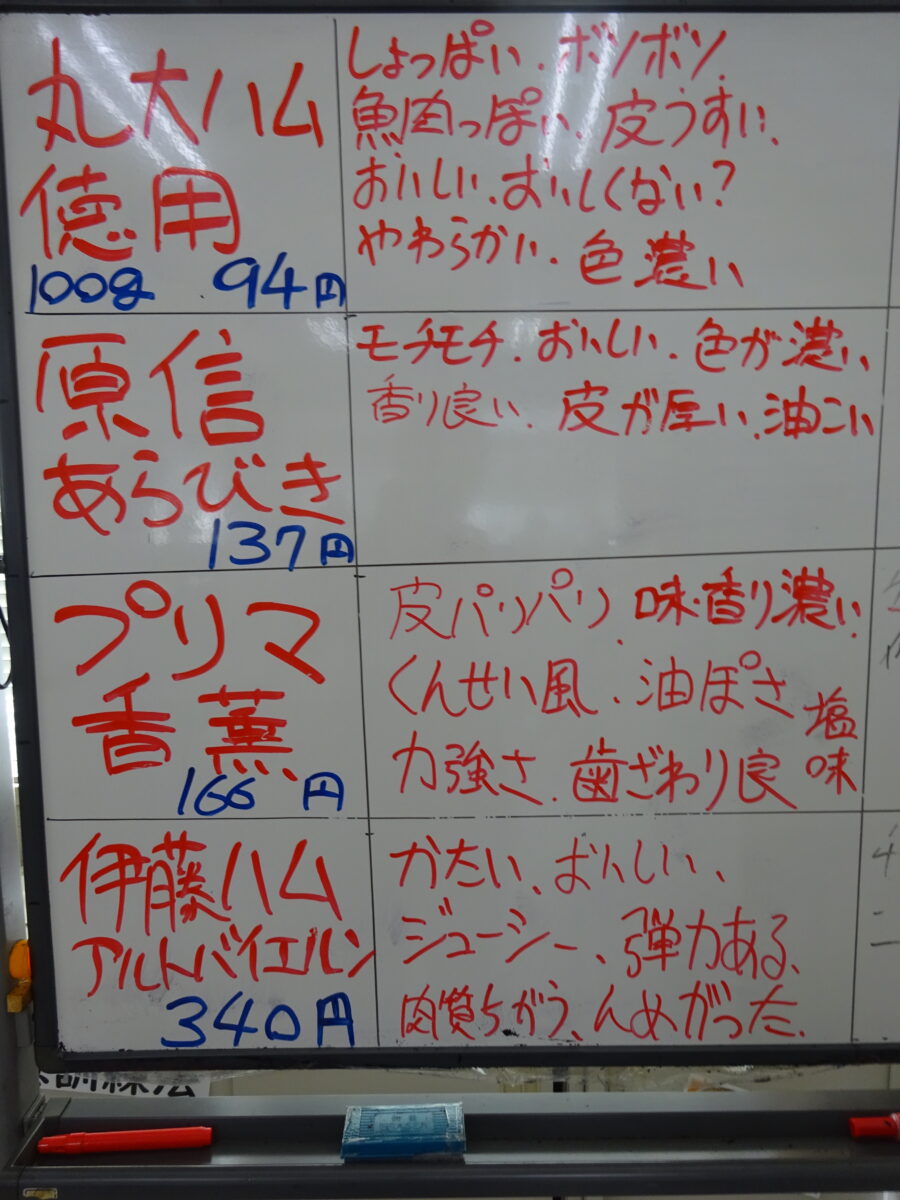 丸大ハム
徳用
100g 94円
しょっぱい、ボソボソ、
魚肉っぽい、皮うすい、
おいしい、おいしくない?
やわらかい、色濃い
原信
あらびき
137円
モチモチ、おいしい、色が濃い
香り良い、皮が厚い、油こい
プリマ
香薫
166円
皮パリパリ、味・香り濃い、
くんせい風、油ぽさ
塩味
力強さ、歯ざわり良
伊藤ハム
アルトバイエルン
340円
かたい、おいしい、
ジューシー、弾力ある、
肉質ちがう、んめがった、